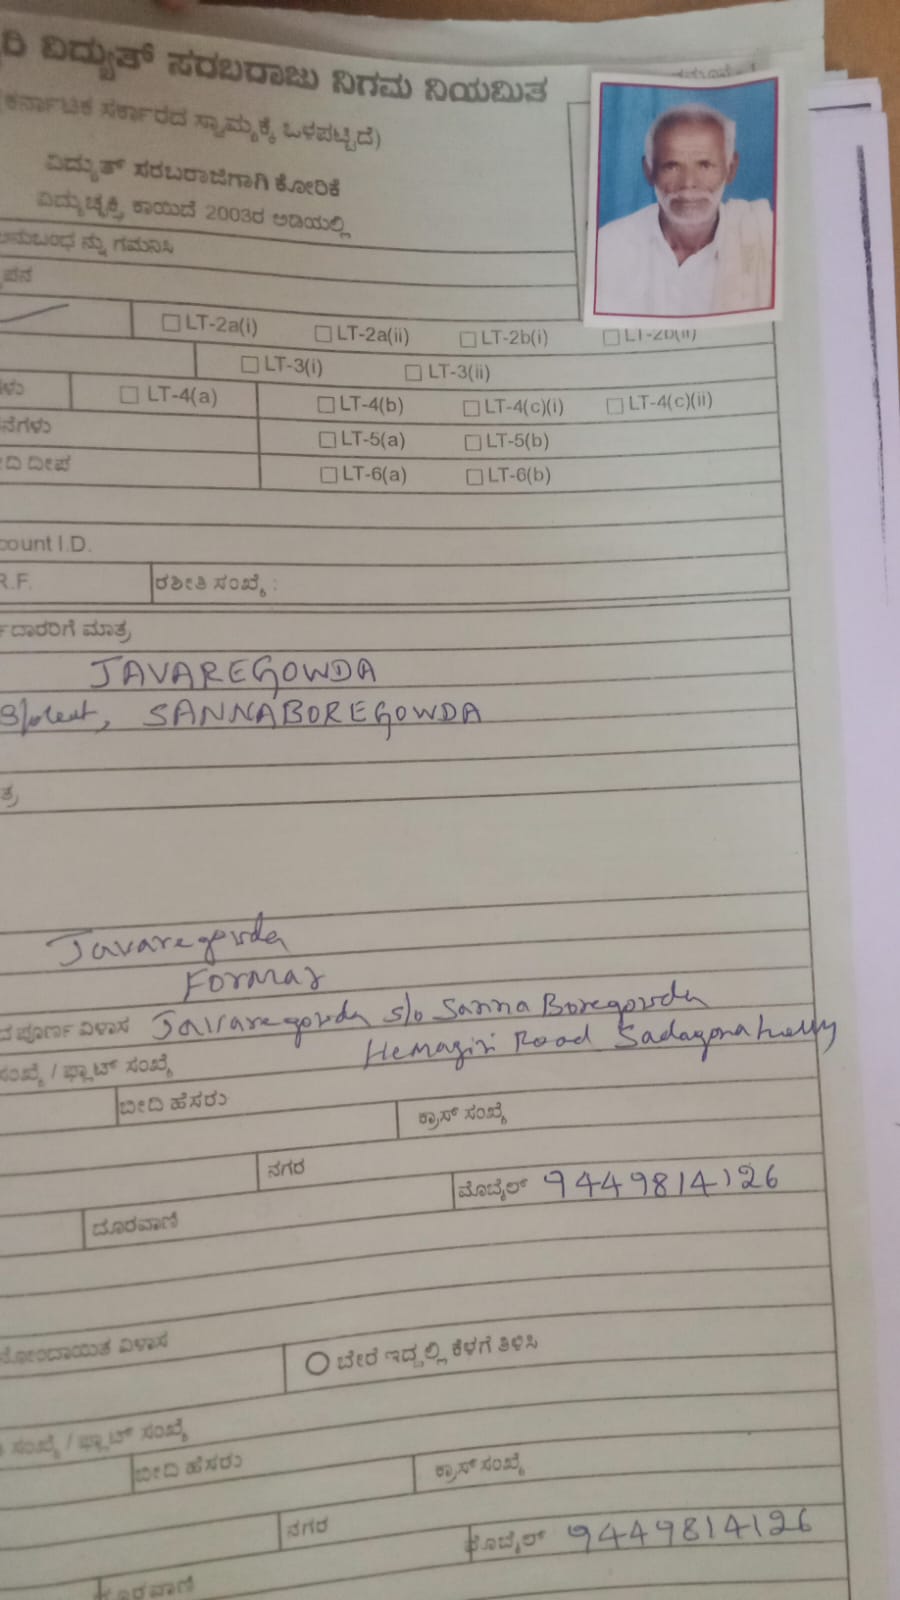 ವಿದ್ಯುತ್ ಸರಬರಾಜು ನಿಗಮ ನಿಯಮಿತ
ಕರ್ನಾಟಕ ಸರ್ಕಾರದ ಸ್ವಾಮ್ಯಕ್ಕೆ ಒಳಪಟ್ಟಿದೆ)
ವಿದ್ಯುತ್ ಸರಬರಾಜಿಗಾಗಿ ಕೋರಿಕೆ
ವಿದ್ಯುಚ್ಛಕ್ತಿ ಕಾಯಿದೆ 2003ರ ಅಡಿಯಲ್ಲಿ
ಅನುಬಂಧ ನ್ನು ಗಮನಿಸಿ
LT-2a(i) LT-2a(ii) LT-2b(i) LT-2b(ii)
LT-3(i) LT-3(ii)
LT-4(a) LT-4(b) LT-4(c)(i) LT-4(c)(ii)
LT-5(a) LT-5(b)
ದೀಪ LT-6(a) LT-6(b)
count I.D.
R.F. ರಶೀತಿ ಸಂಖ್ಯೆ :
ದಾರರಿಗೆ ಮಾತ್ರ
JAVAREGOWDA
S/o SANNABOREGOWDA
Javaregowda
ಪೂರ್ಣ ವಿಳಾಸ Javaregowda s/o Sanna Boregowda
Hemagiri Road
ಸಂಖ್ಯೆ / ಫ್ಲಾಟ್ ಸಂಖ್ಯೆ
ಬೀದಿ ಹೆಸರು ಕ್ರಾಸ್ ಸಂಖ್ಯೆ
ನಗರ
ದೂರವಾಣಿ ಮೊಬೈಲ್ 9449814126
ನೋಂದಾಯಿತ ವಿಳಾಸ ಬೇರೆ ಇದ್ದಲ್ಲಿ ಕೆಳಗೆ ತಿಳಿಸಿ
ಸಂಖ್ಯೆ / ಫ್ಲಾಟ್ ಸಂಖ್ಯೆ
ಬೀದಿ ಹೆಸರು ಕ್ರಾಸ್ ಸಂಖ್ಯೆ
ನಗರ
ದೂರವಾಣಿ ಮೊಬೈಲ್ 9449814126